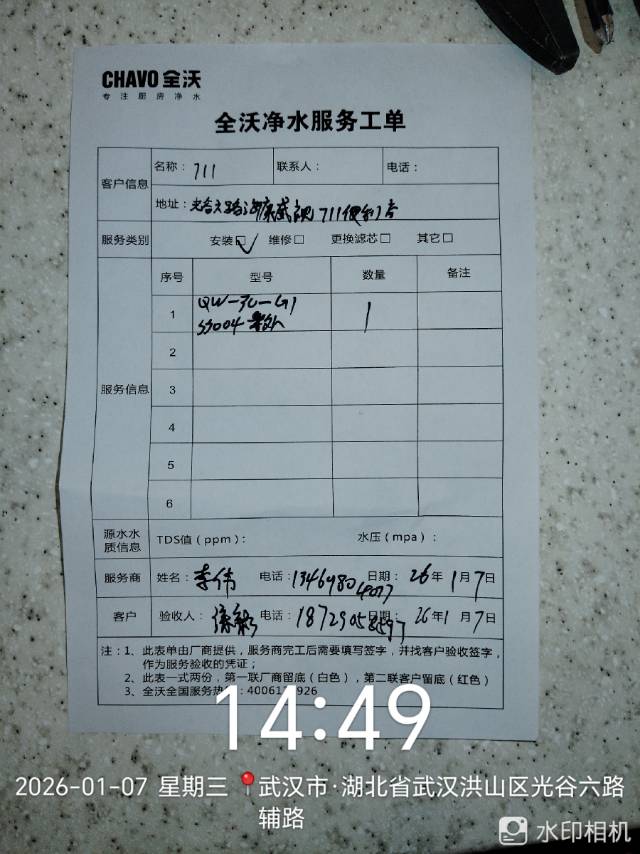 CHAVO 全沃
专注厨房净水
全沃净水服务工单
客户信息
名称：711
联系人：
电话：
地址：711便利店
服务类别
安装☑ 维修□ 更换滤芯□ 其它□
服务信息
序号 型号 数量 备注
1 QW-3L-G1 1
SJ004
2
3
4
5
6
源水水质信息
TDS值（ppm）：
水压（mpa）：
服务商
姓名：李伟 电话： 日期：26年1月7日
客户
验收人： 电话：18729058597 日期：26年1月7日
注：1、此表单由厂商提供，服务商完工后需要填写签字，并找客户验收签字，
作为服务验收的凭证；
2、此表一式两份，第一联厂商留底（白色），第二联客户留底（红色）
3、全沃全国服务热
14:49
2026-01-07 星期三 武汉市·湖北省武汉洪山区光谷六路
辅路
水印相机